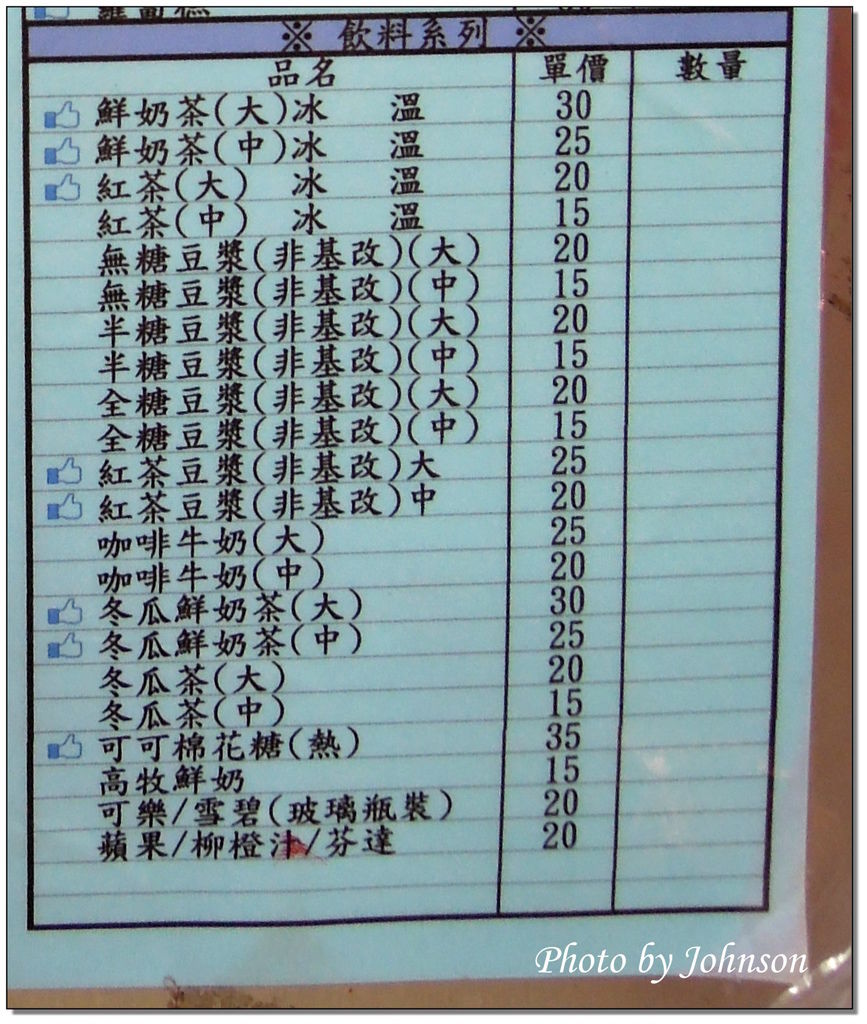 ※ 飲料系列 ※
品名 單價 數量
鮮奶茶(大)冰 溫 30
鮮奶茶(中)冰 溫 25
紅茶(大) 冰 溫 20
紅茶(中) 冰 溫 15
無糖豆漿(非基改)(大) 20
無糖豆漿(非基改)(中) 15
半糖豆漿(非基改)(大) 20
半糖豆漿(非基改)(中) 15
全糖豆漿(非基改)(大) 20
全糖豆漿(非基改)(中) 15
紅茶豆漿(非基改)大 25
紅茶豆漿(非基改)中 20
咖啡牛奶(大) 25
咖啡牛奶(中) 20
冬瓜鮮奶茶(大) 30
冬瓜鮮奶茶(中) 25
冬瓜茶(大) 20
冬瓜茶(中) 15
可可棉花糖(熱) 35
高牧鮮奶 15
可樂/雪碧(玻璃瓶裝) 20
蘋果/柳橙汁/芬達 20
Photo by Johnson